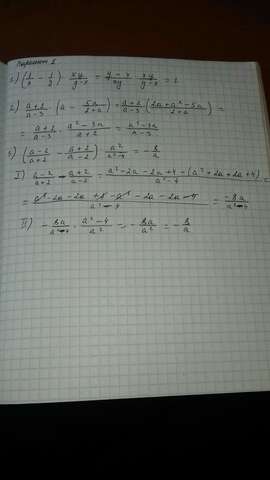 Вариант 1
1) (1/x - 1/y) · xy/(y-x) = (y-x)/xy · xy/(y-x) = 1
2) (a+2)/(a-3) · (a - 5a/(2+a)) = (a+2)/(a-3) · (2a+a²-5a)/(2+a) =
= (a+2)/(a-3) · (a²-3a)/(a+2) = (a²-3a)/(a-3)
3) ((a-2)/(a+2) - (a+2)/(a-2)) : a²/(a²-4) = -8/a
I) (a-2)/(a+2) - (a+2)/(a-2) = (a²-2a-2a+4-(a²+2a+2a+4))/(a²-4) =
= (a²-2a-2a+4-a²-2a-2a-4)/(a²-4) = -8a/(a²-4)
II) -8a/(a²-4) · (a²-4)/a² = -8a/a² = -8/a